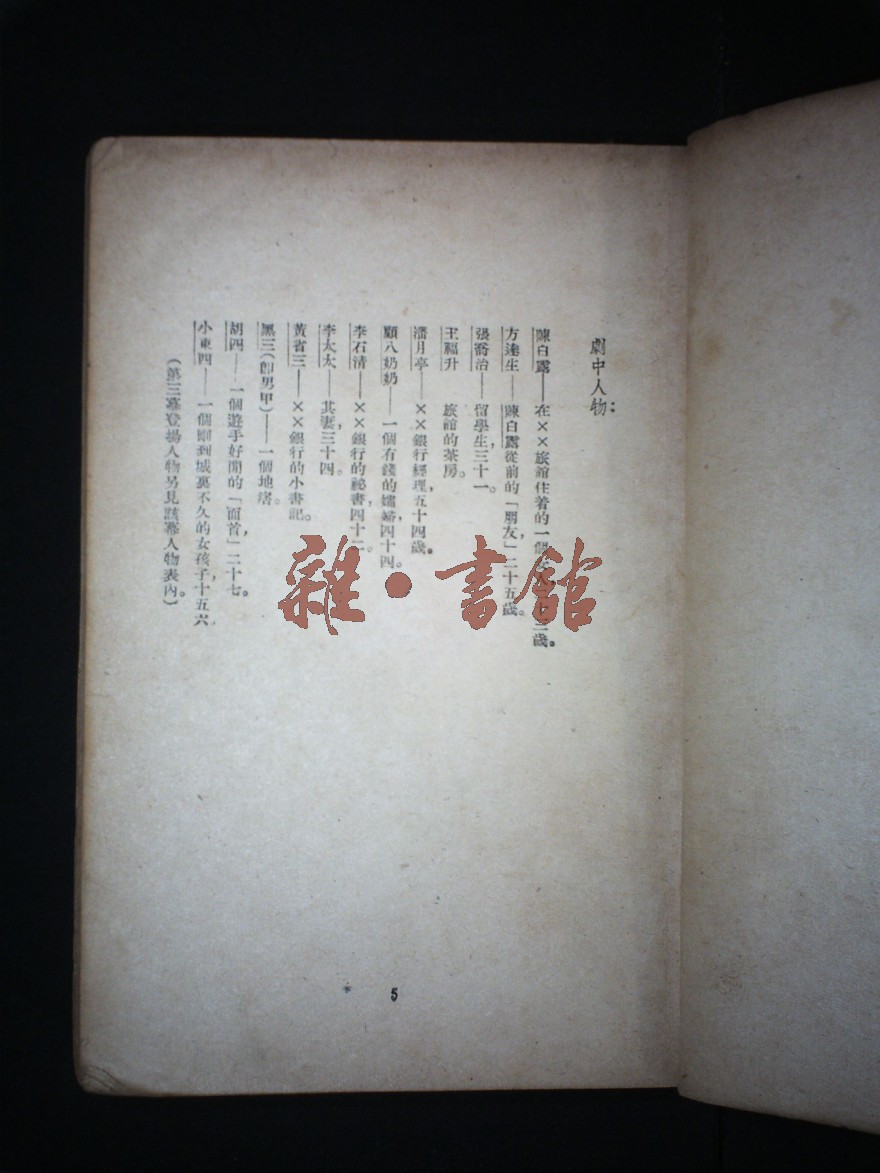 劇中人物：
陳白露——在××旅館住着的一個女人，二十三歲。
方達生——陳白露從前的「朋友」二十五歲。
張喬治——留學生，三十一。
王福升　旅館的茶房。
潘月亭——××銀行經理，五十四歲。
顧八奶奶——一個有錢的孀婦，四十四。
李石清——××銀行的祕書，四十二。
李太太——其妻，三十四。
黃省三——××銀行的小書記。
黑三（卽男甲）——一個地痞。
胡四——一個遊手好閒的「面首」二十七。
小東西——一個剛到城裏不久的女孩子，十五六
（第三幕登場人物另見該幕人物表內。）
雜·書館
5